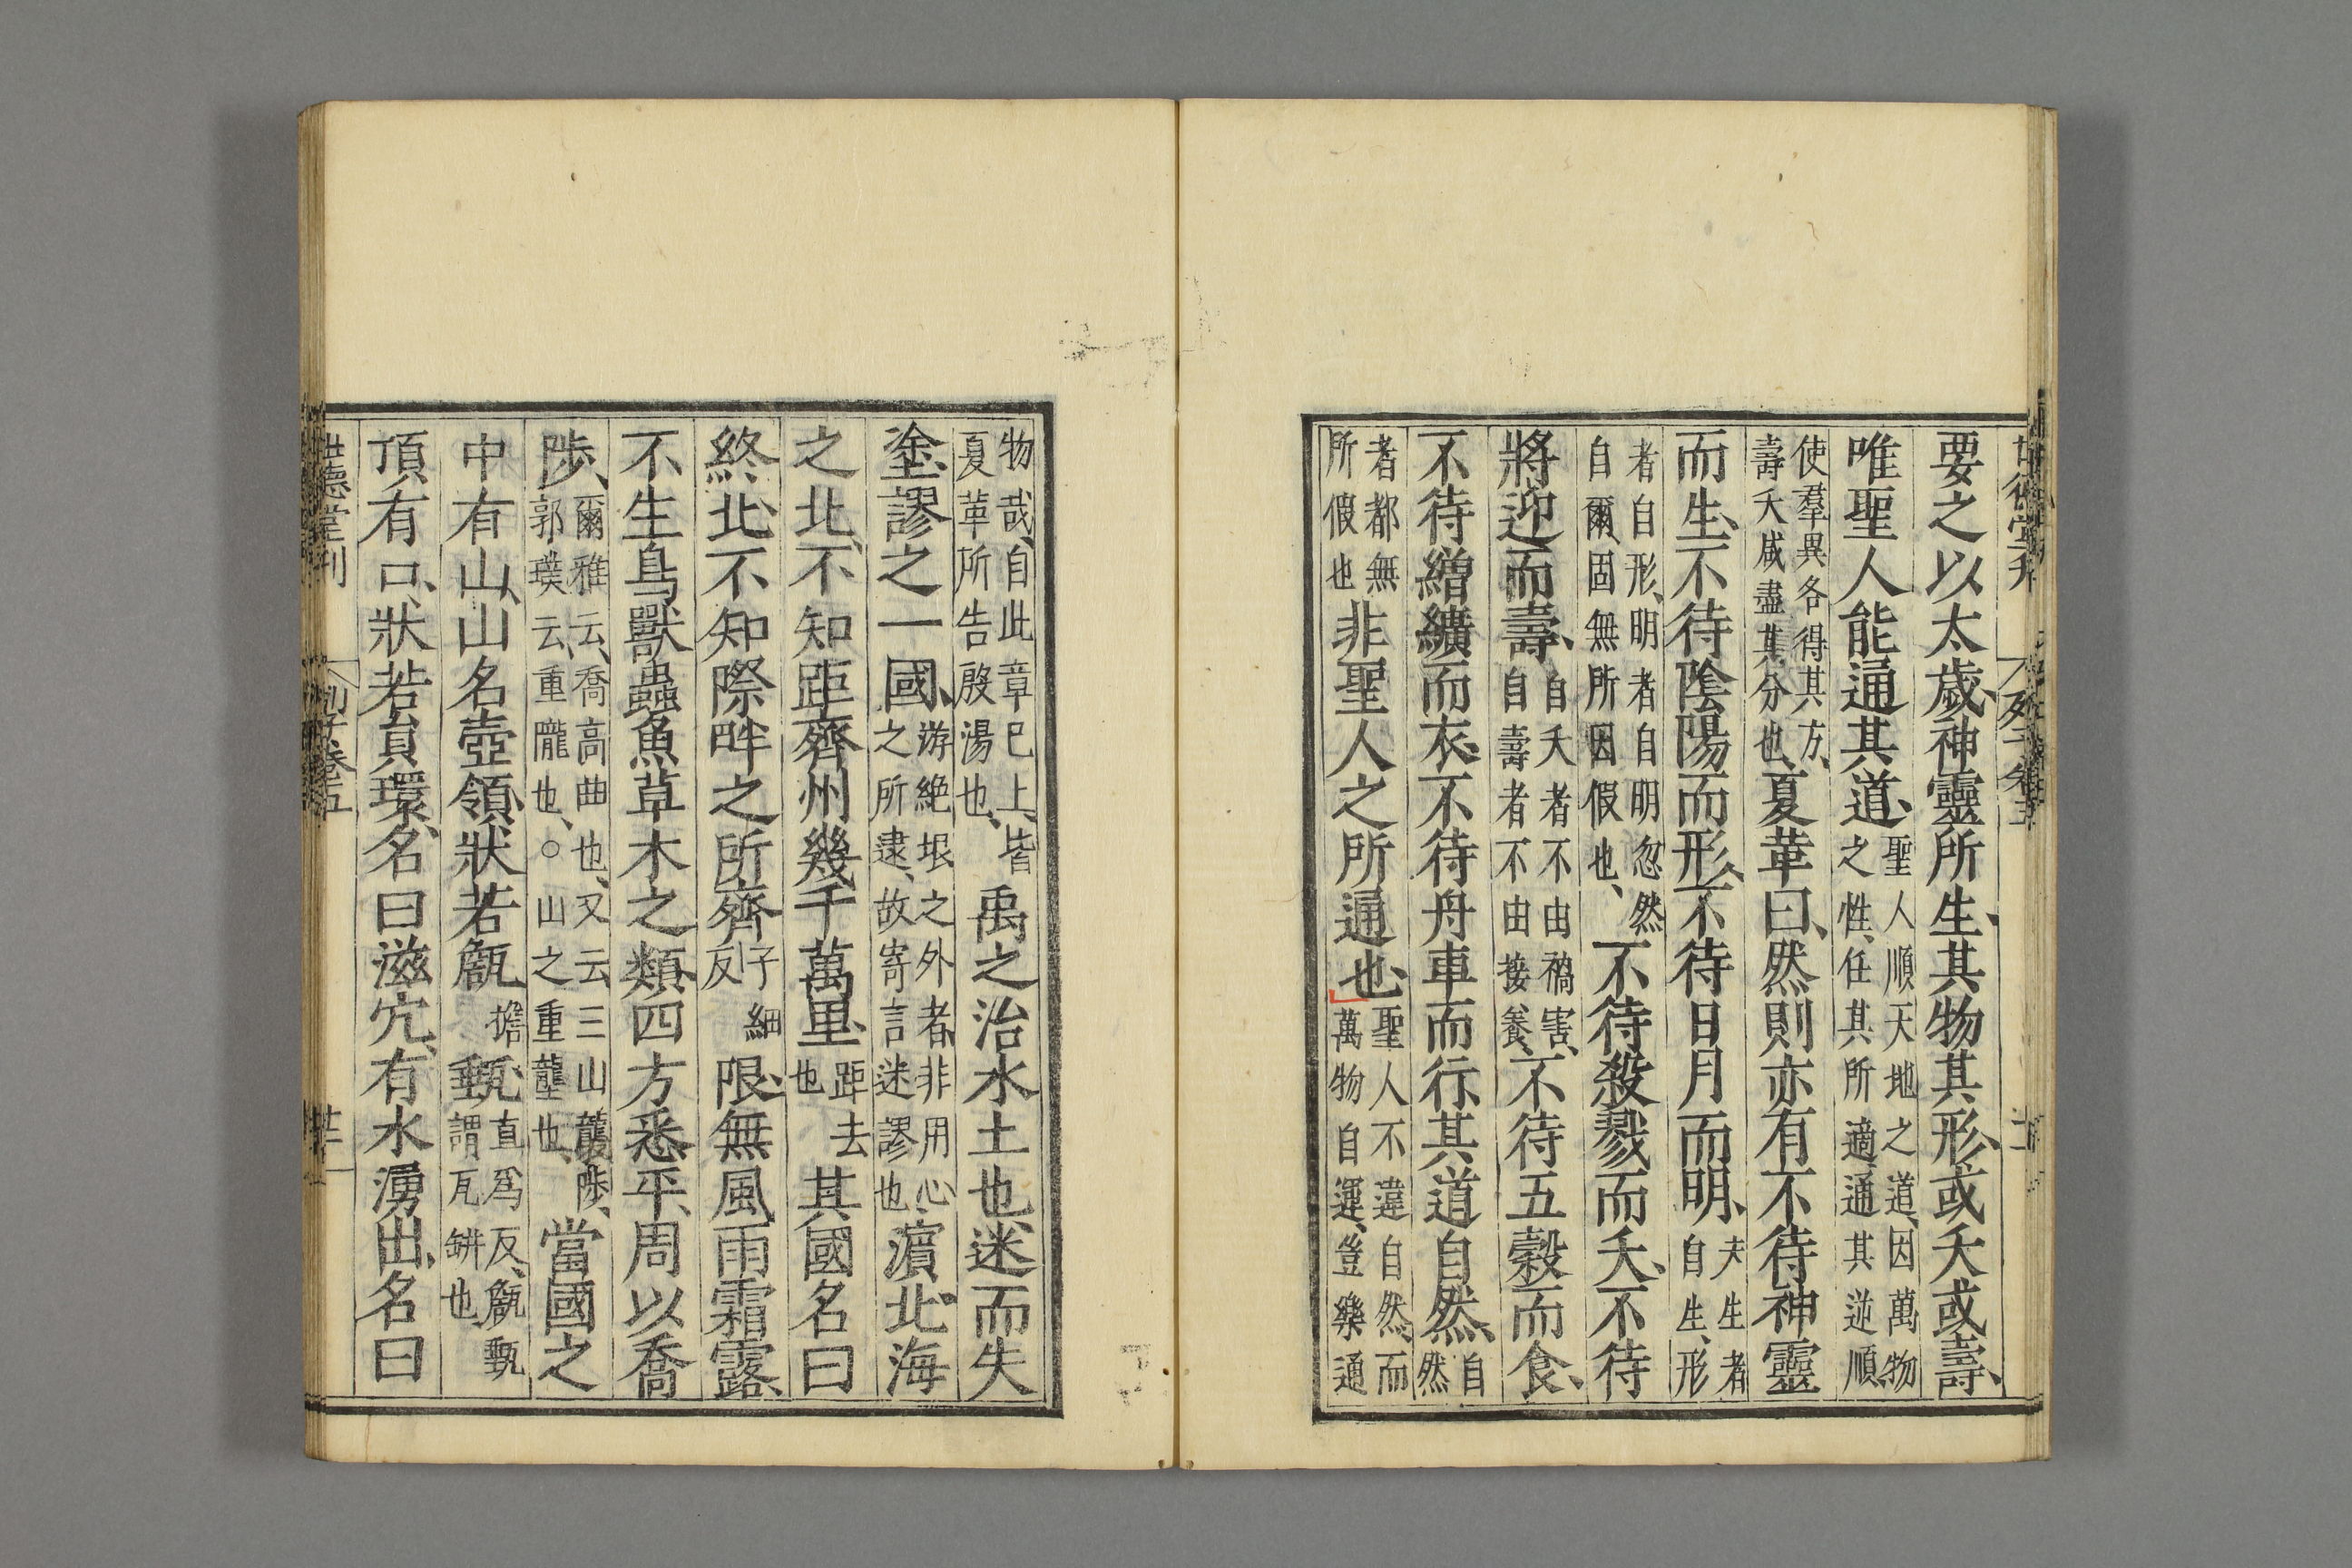 要之以太歳、神靈所生、其物其形、或夭或壽、
唯聖人能通其道、聖人順天地之道、因萬物之性、任其所適、通其逆順、
使羣異各得其方、壽夭咸盡其分也、夏革曰、然則亦有不待神靈
而生、不待陰陽而形、不待日月而明、夫生者自生、形
者自形、明者自明、忽然自爾、固無所因假也、不待殺戮而夭、不待
將迎而壽、自夭者不由禍害、自壽者不由接養、不待五穀而食、
不待繒纊而衣、不待舟車而行、其道自然、自然
者都無所假也非聖人之所通也、聖人不違自然、而萬物自運、豈樂通
物哉、自此章已上、皆夏革所告殷湯也、禹之治水土也、迷而失
塗、謬之一國、游絶垠之外者、非用心之所逮、故寄言迷謬也、濵北海
之北、不知距齊州幾千萬里、距去也其國名曰
終北、不知際畔之所齊子細反限、無風雨霜露、
不生鳥獸蟲魚草木之類、四方悉平、周以喬
陟、爾雅云、喬高曲也、又云三山襲陟、郭璞云、重隴也、○山之重壟也、當國之
中有山、山名壺領、狀若甔擔甀、直爲反、甔甄謂瓦缾也、
頂有口、狀若員環、名曰滋穴、有水湧出、名曰
世德堂刊
列子卷五